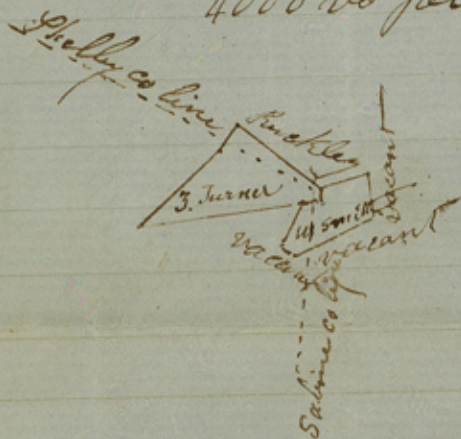 4000 vs
Shelby co line
Buckley
3. Turner
W Smith
vacant
vacant
vacant
Sabine co line